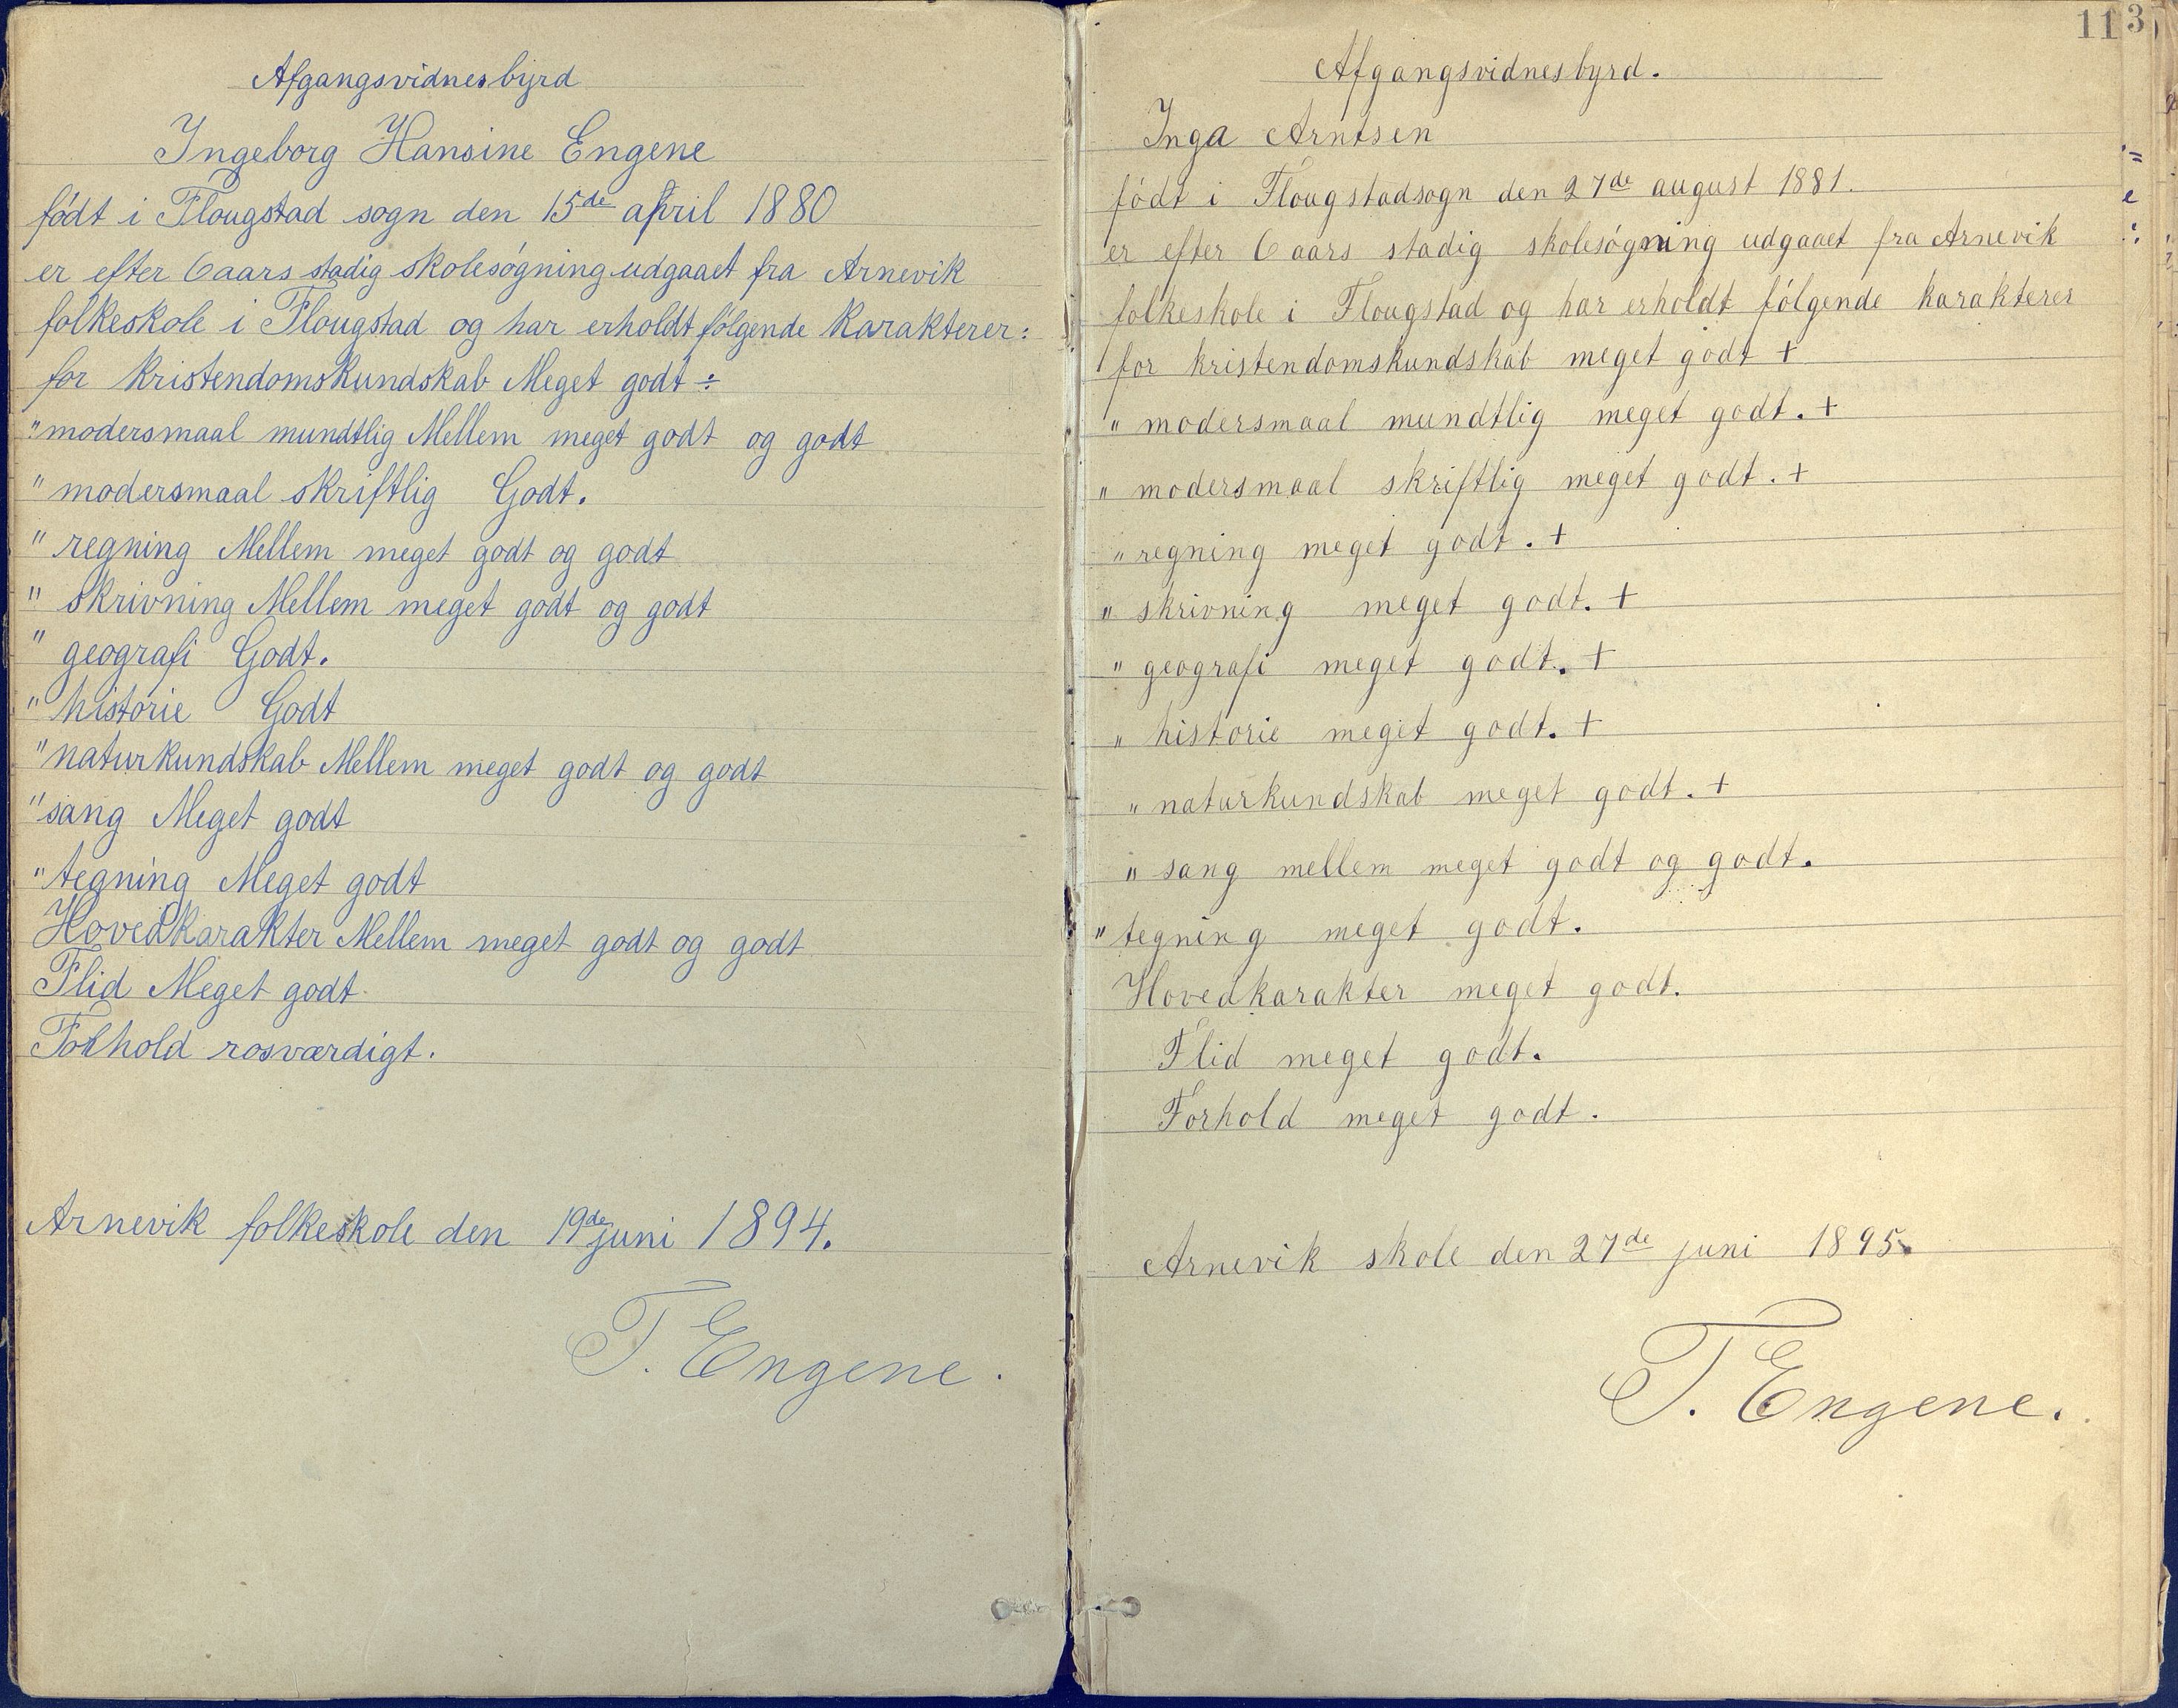 Afgangsvidnesbyrd
Ingeborg Hansine Engene
født i Flougstad sogn den 15de april 1880
er efter 6 aars stadig skolesøgning udgaaet fra Arnevik
folkeskole i Flougstad og har erholdt følgende karakterer:
for kristendomskundskab Meget godt ÷
" modersmaal mundtlig Mellem meget godt og godt
" modersmaal skriftlig Godt.
" regning Mellem meget godt og godt
" skrivning Mellem meget godt og godt
" geografi Godt.
" historie Godt
" naturkundskab Mellem meget godt og godt
" sang Meget godt
" tegning Meget godt
Hovedkarakter Mellem meget godt og godt
Flid Meget godt
Forhold rosværdigt.
Arnevik folkeskole den 19de juni 1894.
T. Engene.
113
Afgangsvidnesbyrd.
Inga Arntsen
født i Flougstadsogn den 27de august 1881.
er efter 6 aars stadig skolesøgning udgaaet fra Arnevik
folkeskole i Flougstad og har erholdt følgende karakterer
for kristendomskundskab meget godt +
" modersmaal mundtlig meget godt. +
" modersmaal skriftlig meget godt. +
" regning meget godt. +
" skrivning meget godt. +
" geografi meget godt. +
" historie meget godt. +
" naturkundskab meget godt. +
" sang mellem meget godt og godt.
" tegning meget godt.
Hovedkarakter meget godt.
Flid meget godt.
Forhold meget godt.
Arnevik skole den 27de juni 1895.
T. Engene.